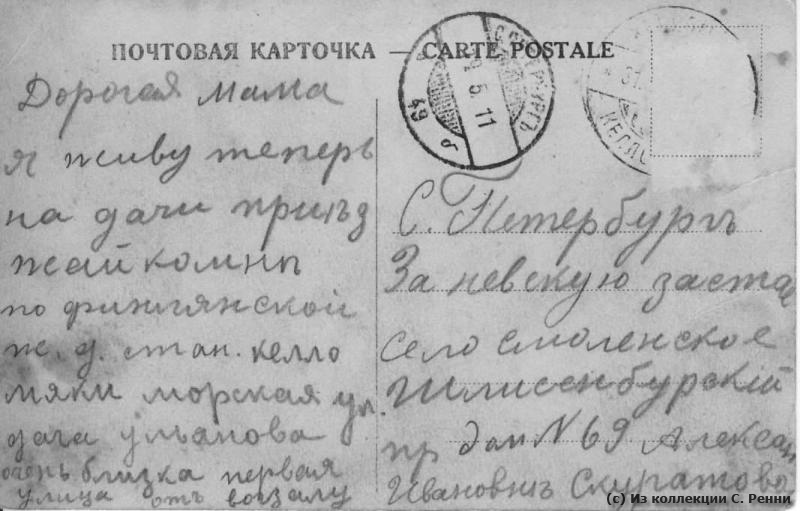 ПОЧТОВАЯ КАРТОЧКА — CARTE POSTALE
Дорогая мама
я живу теперь
на дачи приѣз
жай комнѣ
по финлянской
ж. д. стан. келло
мяки морская ул.
дача ульянова
очень близка первая
улица отъ вокзалу
С.ПЕТЕРБУРГЪ
5.11
49
31.
КЕЛЛО
С. Петербургъ
За невскую застав
село смоленское
Шлисенбурскій
пр дом N 69 Алексан
Ивановнъ Скуратова
(c) Из коллекции С. Ренни